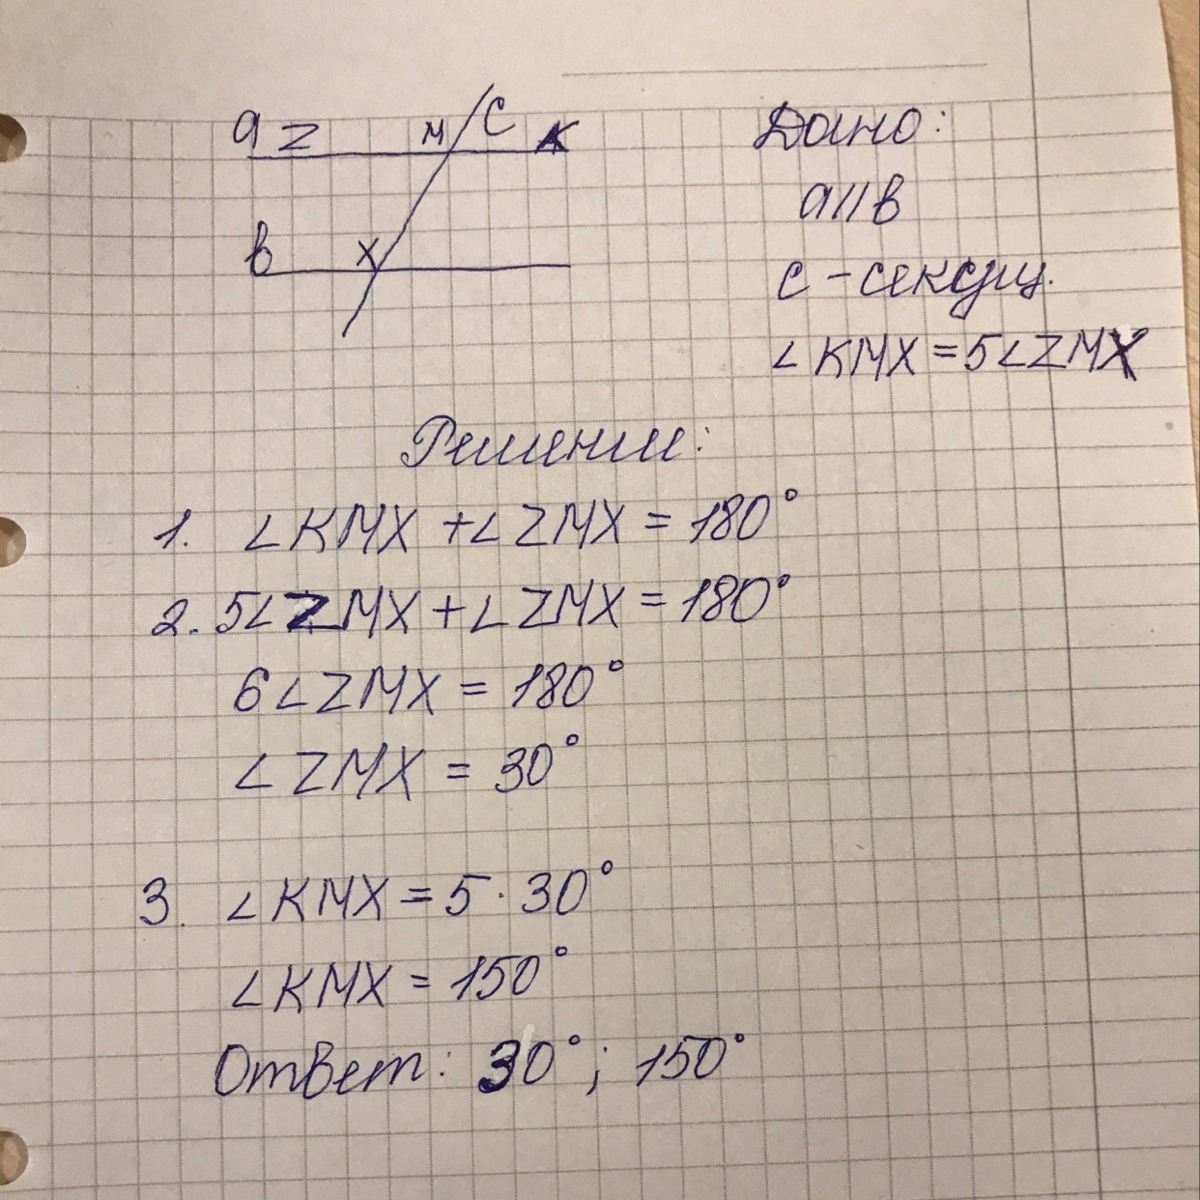 a z м c к
Дано:
a||b
в х
c - секущ.
∠KMX = 5∠ZMX
Решение:
1. ∠KMX + ∠ZMX = 180°
2. 5∠ZMX + ∠ZMX = 180°
6∠ZMX = 180°
∠ZMX = 30°
3. ∠KMX = 5 · 30°
∠KMX = 150°
Ответ: 30°; 150°